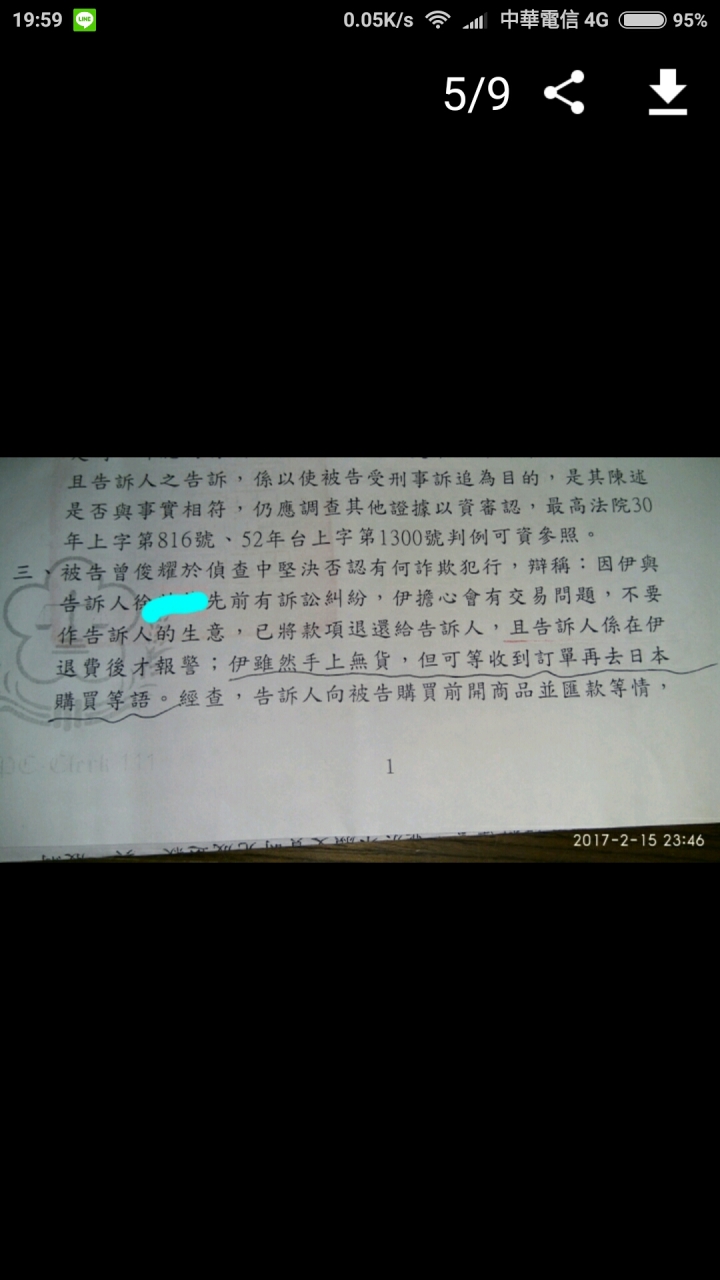 19:59
0.05K/s
中華電信 4G
95%
5/9
且告訴人之告訴，係以使被告受刑事訴追為目的，是其陳述
是否與事實相符，仍應調查其他證據以資審認，最高法院30
年上字第816號、52年台上字第1300號判例可資參照。
三、被告曾俊耀於偵查中堅決否認有何詐欺犯行，辯稱：因伊與
告訴人徐 先前有訴訟糾紛，伊擔心會有交易問題，不要
作告訴人的生意，已將款項退還給告訴人，且告訴人係在伊
退費後才報警；伊雖然手上無貨，但可等收到訂單再去日本
購買等語。經查，告訴人向被告購買前開商品並匯款等情，
1
2017-2-15 23:46